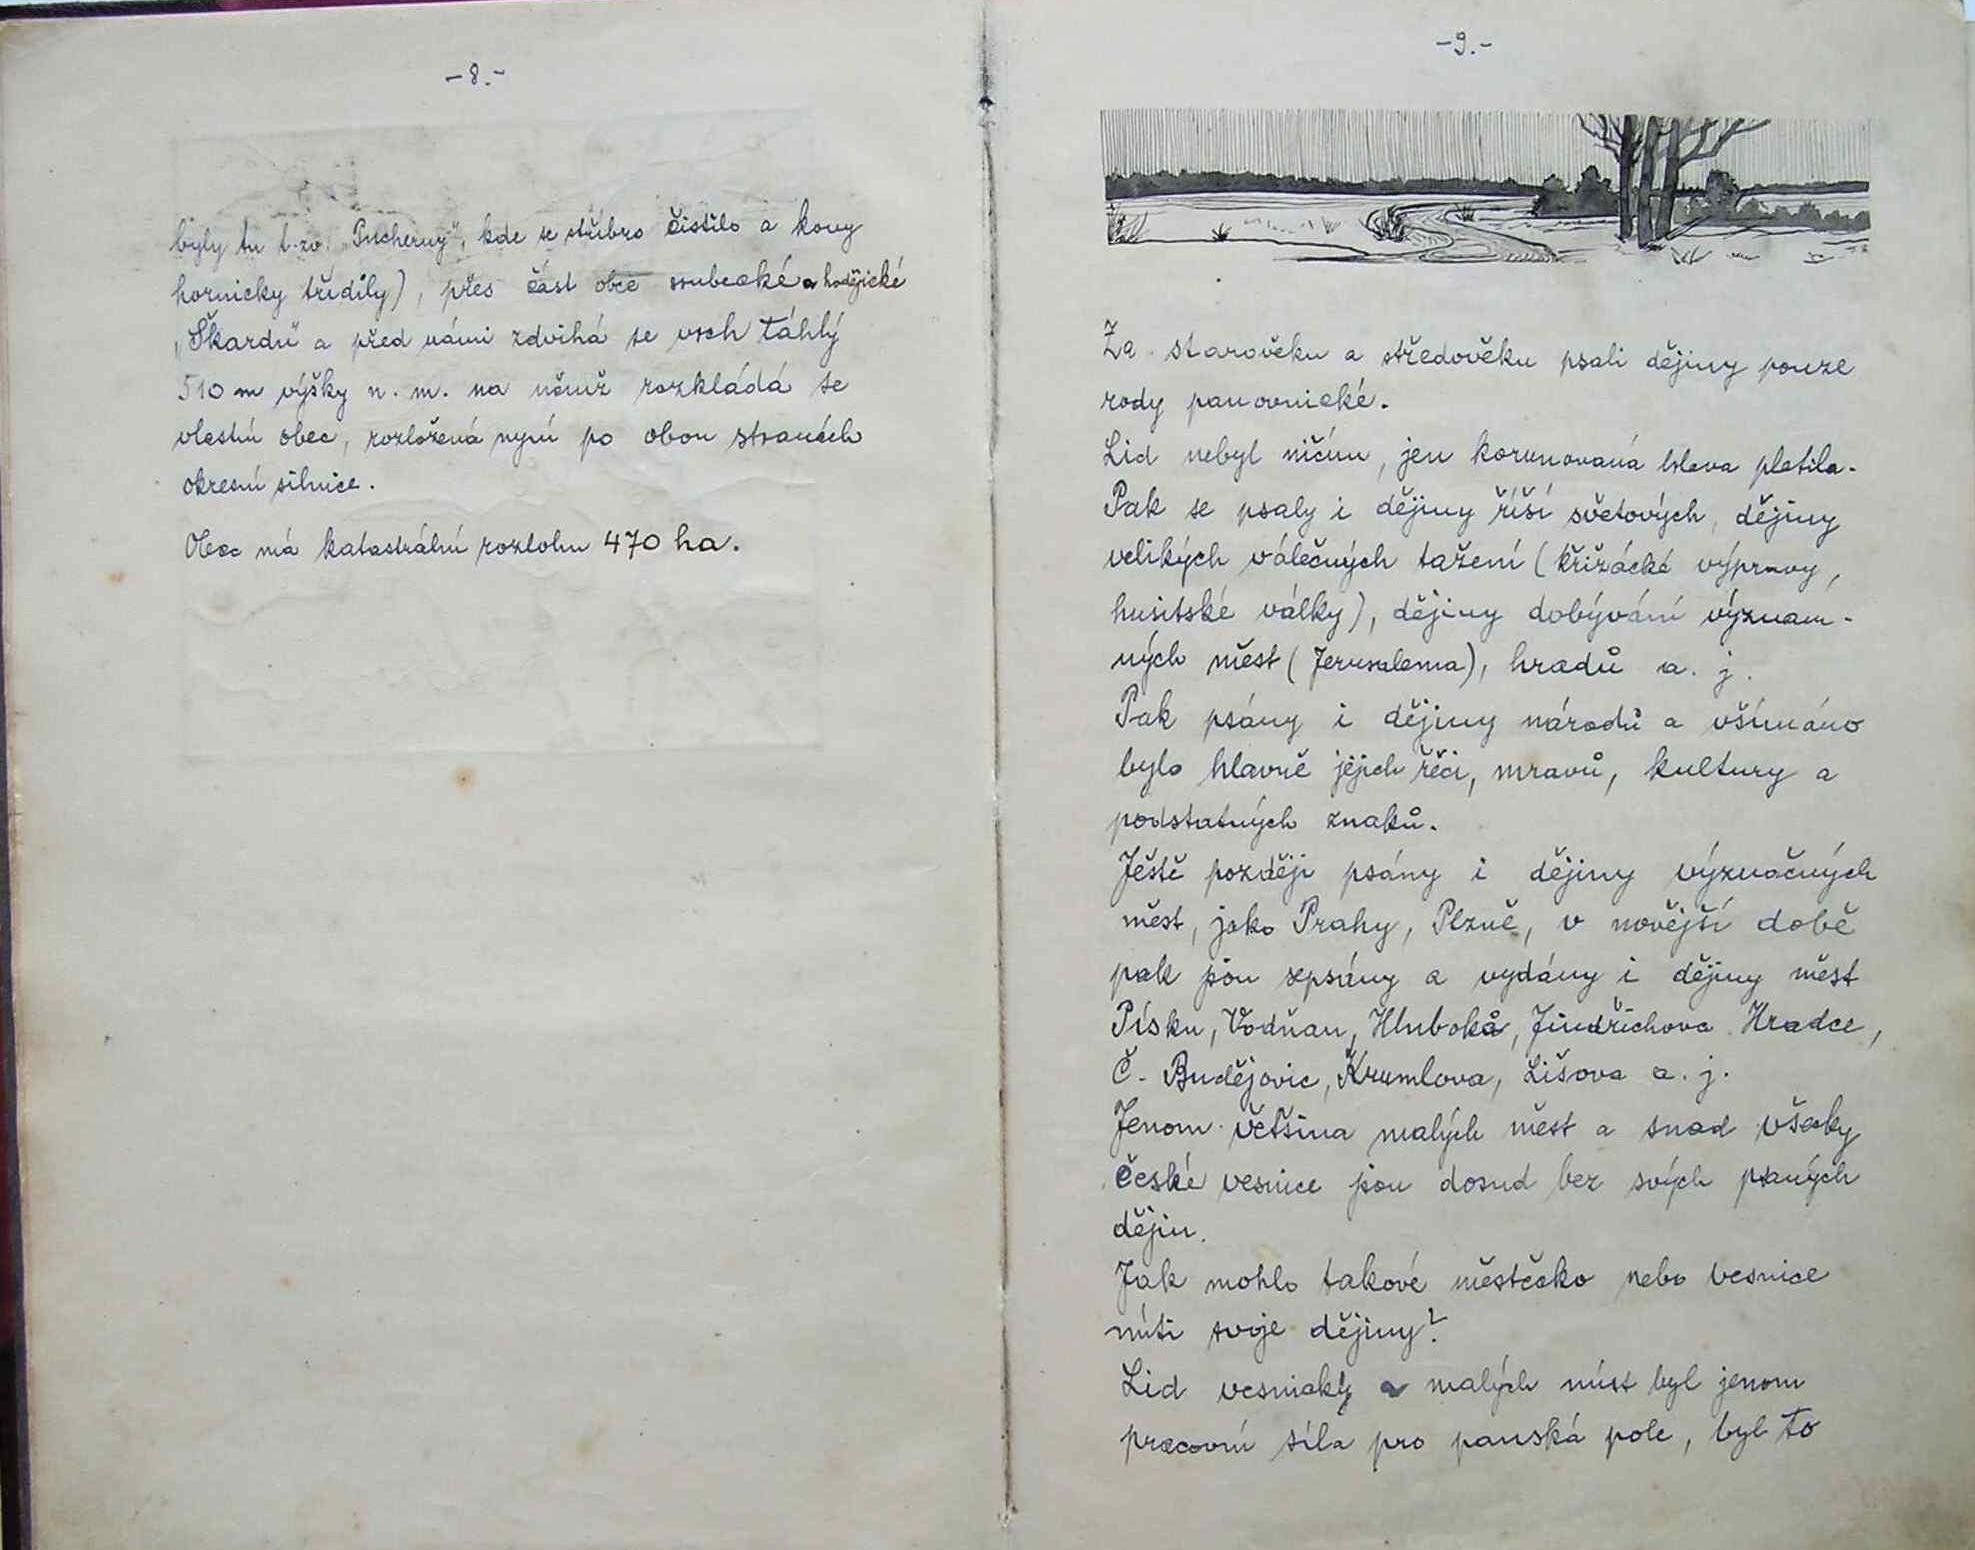 -8.-
byly tu t.zv. „Pucherny", kde se stříbro čistilo a kovy
hornicky třídily), přes část obce a hodějické
„Škardu" a před námi zdvihá se vrch táhlý
510 m výšky n. m. na němž rozkládá se
vlastní obec, rozložená nyní po obou stranách
okresní silnice.
Obec má katastrální rozlohu 470 ha.
-9.-
Za starověku a středověku psali dějiny pouze
rody panovnické.
Lid nebyl ničím, jen korunovaná hlava platila.
Pak se psaly i dějiny říší světových, dějiny
velikých válečných tažení (křižácké výpravy,
husitské války), dějiny dobývání význam-
ných měst (Jerusalema), hradů a. j.
Pak psány i dějiny národů a všímáno
bylo hlavně jejich řěči, mravů, kultury a
podstatných znaků.
Ještě později psány i dějiny význačných
měst, jako Prahy, Plzně, v novější době
pak jsou sepsány a vydány i dějiny měst
Písku, Vodňan, Hluboká, Jindřichova Hradce,
Č. Budějovic, Krumlova, Lišova a. j.
Jenom většina malých měst a snad všecky
české vesnice jsou dosud bez svých psaných
dějin.
Jak mohlo takové městečko nebo vesnice
míti svoje dějiny?
Lid vesnický a malých míst byl jenom
pracovní síla pro panská pole, byl to